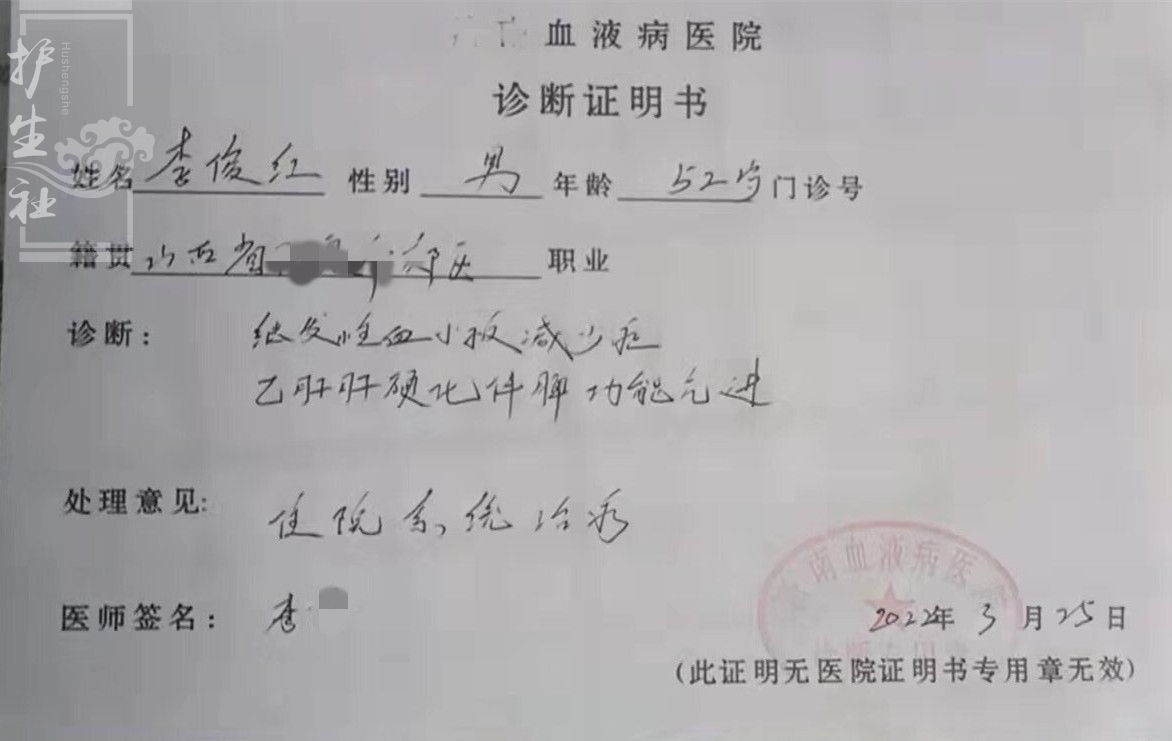 护生社
Hushengshe
血液病医院
诊断证明书
姓名 李俊红 性别 男 年龄 52岁 门诊号
籍贯 山西省 郊区 职业
诊断： 继发性血小板减少症
乙肝肝硬化伴脾功能亢进
处理意见: 住院系统治疗
医师签名： 李
南血液病医院
诊断专用章
2022年 3月25日
(此证明无医院证明书专用章无效)